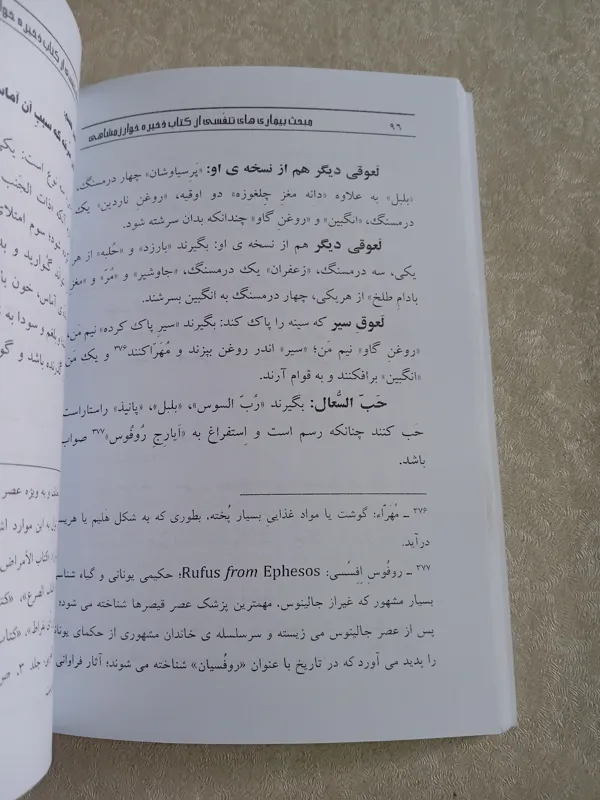 ۹۶
مبحث بیماری های تنفسی از کتاب ذخیره خوارزمشاهی
لَعوقی دیگر هم از نسخه ی او: «پَرسیاوشان» چهار درمسنگ،
«بلبل» به علاوه «دانه مغز چلغوزه» دو اوقیه، «روغنِ ناردین» یک
درمسنگ، «انگبین» و «روغنِ گاو» چندانکه بدان سرشته شود.
لَعوقی دیگر هم از نسخه ی او: بگیرند «بارزد» و «حُلبه» از هر
یکی، سه درمسنگ، «زعفران» یک درمسنگ، «جاوشیر» و «مُرّ» و «مغز
بادامِ طلخ» از هریکی، چهار درمسنگ به انگبین بسرشند.
لَعوقِ سیر که سینه را پاک کند: بگیرند «سیرِ پاک کرده» نیم مَن،
«روغنِ گاو» نیم مَن؛ «سیر» اندر روغن بپزند و مُهَرّاکنند۳۷۶ و یک مَن
«انگبین» برافکنند و به قوام آرند.
حَبّ السُّعال: بگیرند «رُبّ السوس»، «بلبل»، «پانیذ» راستاراست
حَب کنند چنانکه رسم است و اِستفراغ به «اَیارجِ رُوفُوس»۳۷۷ صواب
باشد.
۳۷۶ ـ مُهَرّاء: گوشت یا مواد غذاییِ بسیار پُخته. بطوری که به شکل هَلیم یا هریسه
درآید.
۳۷۷ ـ روفُوسِ اِفِسُسی: Rufus from Ephesos؛ حکیمی یونانی و گیاه شناسی
بسیار مشهور که غیراز جالینوس. مهمترین پزشک عصر قیصرها شناخته می شود.
پس از عصر جالینوس می زیسته و سرسلسله ی خاندان مشهوری از حکمای یونان
را پدید می آورد که در تاریخ با عنوان «روفُسیان» شناخته می شوند؛ آثار فراوانی